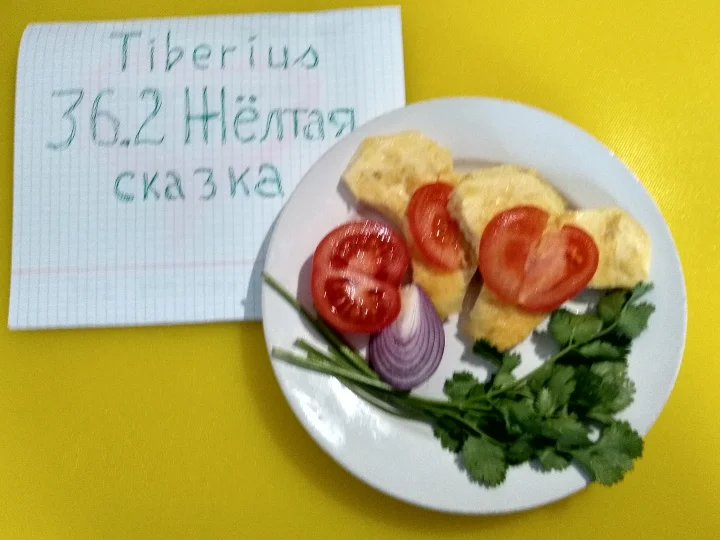 Tiberius
36.2 Жёлтая
сказка